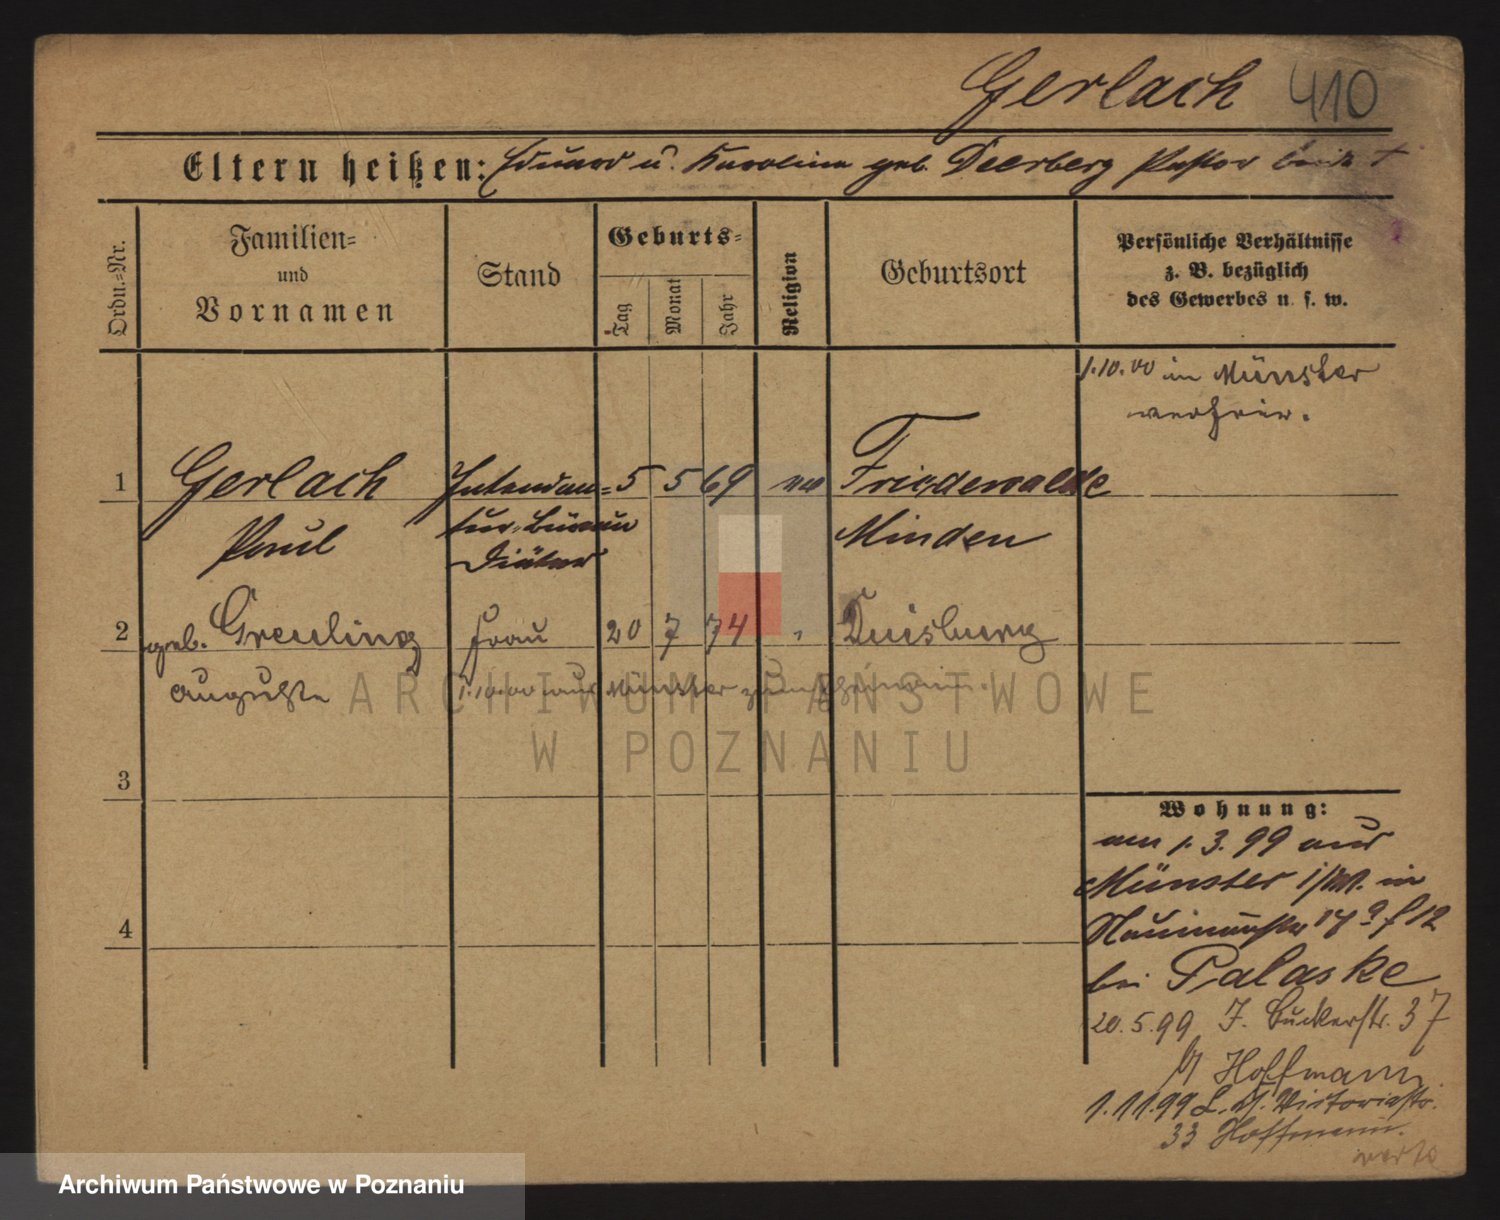 Gerlach 410
Eltern heißen: Eduard u. Karoline geb. Deerberg Pastor beide †
Ordn.=Nr.
Familien=
und
Vornamen
Stand
Geburts=
Tag
Monat
Jahr
Religion
Geburtsort
Persönliche Verhältnisse
z. B. bezüglich
des Gewerbes u. s. w.
1.10.00 in Münster
verheir.
1 Gerlach Intendan= 5 5 69 ev Friedewalde
Paul tur-Büreau Minden
Diätar
2 geb. Greuling Frau 20 7 74 " Duisburg
Auguste 1.10.00 aus Münster
3
4
Wohnung:
am 1.3.99 aus
Münster i/W. in
17 12
bei Palaske
20.5.99 J. Bukerstr. 37
Hoffmann
1.11.99 L. Victoriastr.
33 Hoffmann.
ARCHIWUM PAŃSTWOWE
W POZNANIU
Archiwum Państwowe w Poznaniu